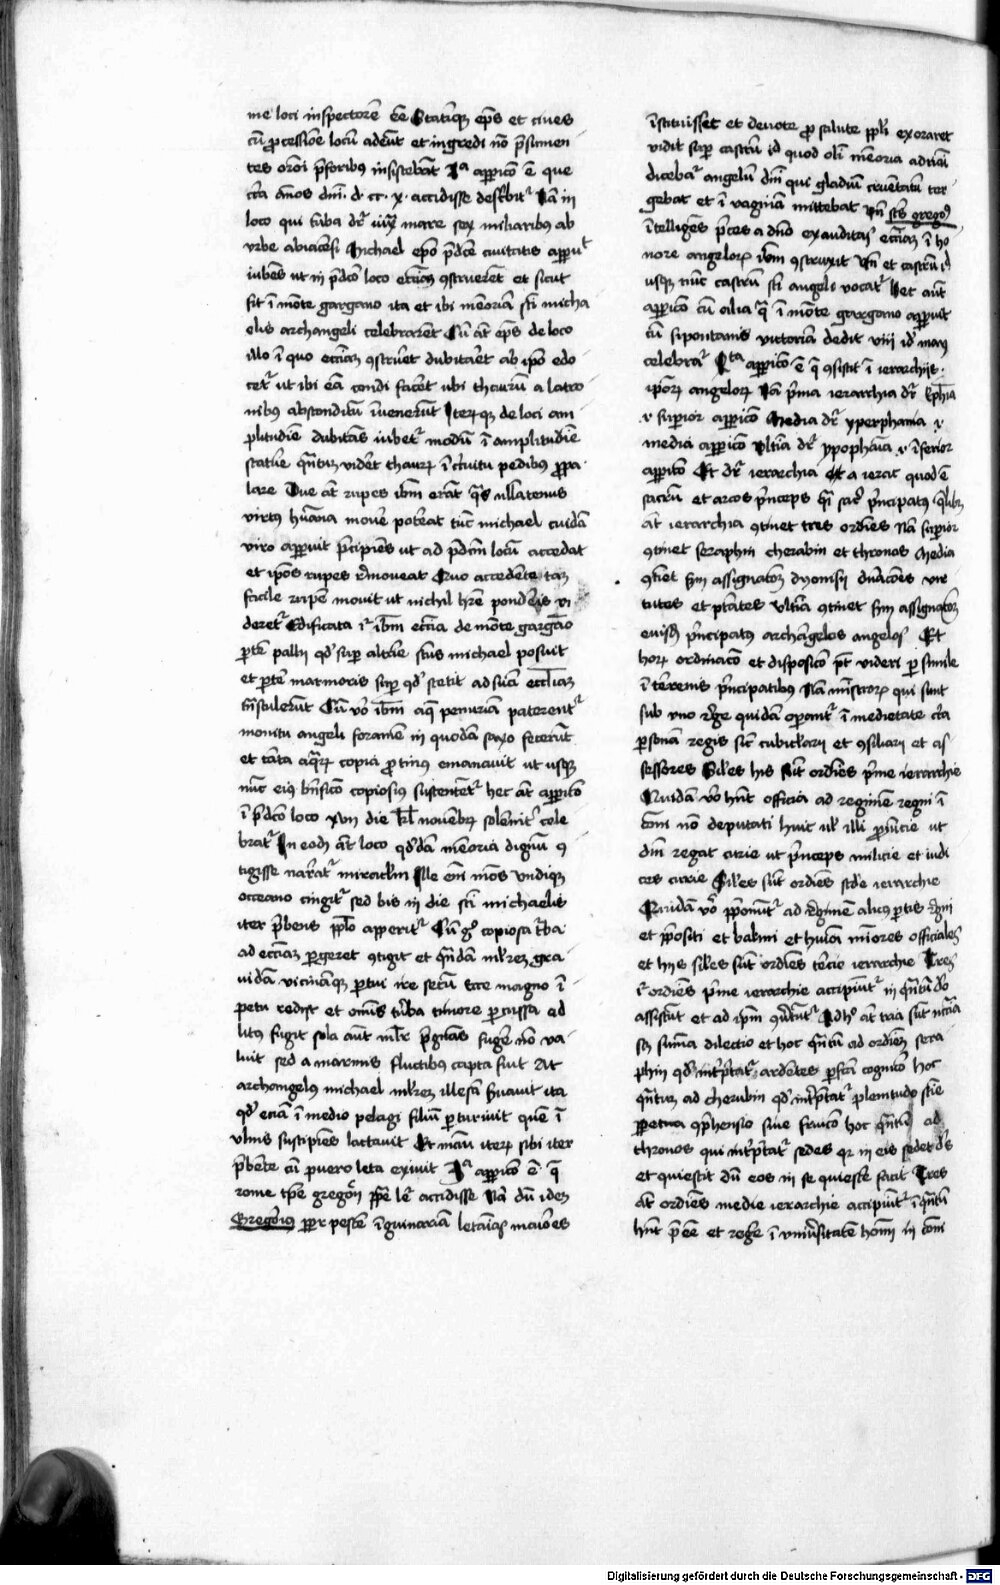 me loci inspectorē eē Statīqȝ ep̄s et ciues
cū ꝓcessiōe locū adeūt et ingredi nō p̄sumen
tes orōi p̄ foribus insistebāt Jᵃ apꝑicō ē que
c̄ca ānos dn̄i · d · cc · x · accidisse desc̄bitʳ Nā in
loco qui tūba dr̄ iuxͭ mare sex miliaribus ab
vrbe abiacēsi Michael ep̄o p̄dc̄e ciuitatis apꝑuͭ
iubēs ut in p̄dc̄o loco ecc̄iaȝ ꝯstruerēt et sicut
fit ī mōte gargano ita et ibi memōiā sc̄i micha
elis archangeli celebrarēt Cū āt ep̄s de loco
illo ī quo ecc̄iaȝ ꝯstruēt dubitaret ab ip̄o edo
cetʳ ut ibi eā condi facēt ubi thaurū a latro
nibus absconditū īuenerūt Iterūqȝ de loci am
plitudīe dubitās iubetʳ modū ī amplitudīe
statūe qn̄tum vidēt thaurū ī ċcuitu pedibus ꝓpa
lare Due āt rupes ibm̄ erāt q̄s nllatenus
virtus hūana mouē potēat tūc michael cuidā
viro apꝑuit p̄cipiēs ut ad p̄dcm̄ locū accedat
et ip̄os rupes r̄moueat Quo accedēte tam
facile rupē mouit ut nichil hr̄e pondēis vi
deretʳ Edificata igͥ ibm̄ ecc̄ia de mōte gargāo
ꝑtē pallij qd̓ suꝑ altare sc̄us michael posuit
et ꝑtē marmoris suꝑ qd̓ stetit ad suā eccl̄iam
t̄nstulerūt Cū v̓o ibm̄ aq̄ penuriam paterentʳ
monitu angeli foramē in quodā saxo fecerūt
et tāta aq̄rū copia ꝓtinus emanauit ut usqȝ
nūc eius bn̄ficō copiosius sustentētʳ hec āt apꝑicō
ī p̄dc̄o loco xvii die kl̄ nouēbrȝ solēnitʳ cele
bratʳ In eodȝ āt loco qd̓dā memōia dignū ꝯ
tigisse narratʳ miraclm̄ Ille em̄ mōs vndiqȝ
occeano cingitʳ sed bis in die sc̄i michaelis
iter p̄bens ppl̄o apperitʳ Cū gͦ copiosa t̄ba
ad ecc̄iam ꝑgeret ꝯtigit et qn̄dam ml̄reȝ gra
uidam vicināqȝ ꝑtui ire secū Ecce magno ī
petu redijt et oīnis tūba timore ꝑcussa ad
litus fugit sola aūt ml̄r p̄gnās fugē nō va
luit sed a marinis fluctibus capta fuit At
archangelus michael ml̄reȝ illesā s̓uauit ita
qd̓ eciā ī medio pelagi filiū ꝑturiuit quē ī
vlnis suscipiēs lactauit Et māu iterȝ sibi iter
p̄bēte cū puero leta exiuit Jᵃ apꝑicō ē q̄
rome tp̄e gregorij pp̄e l̄r accidisse Nā dū ideȝ
Gregorius ppr̄ pestē īguinariam letaniās maiōes
īstituisset et deuote ꝓ salute ppl̄i exoraret
vidit suꝑ castrū id quod olī memoria adriani
dicebatʳ angelū dn̄i qui gladiū cruentatū ter
gebat et ī vaginā mittebat Vn̄ sc̄s gregoⁱ
ītelligēs p̄ces a dn̄o exauditas ecc̄iaȝ ī ho
nore angelorū ibm̄ ꝯstruxit Vn̄ et castrū id
usqȝ nūc castrū sc̄i angeli vocatʳ Hec aūt
apꝑicō cū alia q̄ ī mōte gargano apꝑuit
cū sipontanis victoriā dedit viij id̓ maij
celebratʳ Qͣrta apꝑicō ē q̄ ꝯsistit ī ierarchijs
ip̄orȝ angelorȝ Nā p̄ma ierarchia dr̄ Ephīa
.i. suꝑior apꝑicō Media dr̄ yperphania .i.
media apꝑicō Vltīa dr̄ ypophāia .i. īferior
apꝑicō Et dr̄ ierarchia a ierar quod ē
sacrū et arcos p̄nceps q̄i sac̄ p̄ncipatus Quelibȝ
āt ierarchia ꝯtinet tres ordīes Nā suꝑior
ꝯtinet seraphin cherubin et thronos Media
ꝯtiet s̄m assignatōȝ dyonisij dn̄acōes vir
tutes et ptātes Vltīa ꝯtinet s̄m assignatōȝ
eiusdȝ p̄ncipatus archāgelos angelos Et
horȝ ordinacō et disposicō pt̄ videri ꝑ simile
ī tērenis p̄ncipatibus Nā mīstrorȝ qui sunt
sub vno rēge quidā oꝑantʳ ī medietate c̄ca
ꝑsonam regis sic̄ cubicl̓arij et ꝯsiliarij et as
sessores Sil̓es his sūt ordīes p̄me ierarchie
Quidā v̓o hn̄t officia ad regimē regni ī
cōni nō deputati huic ul̓ illi ꝓuīcie ut
dūx regat curie ut p̄nceps milicie et iudi
ces curie Sil̓es sūt ordīes sc̄de ierarchie
Quidā v̓o p̄ponūtʳ ad r̄gimē alicȝ ꝑtis r̄gni
et p̄positi et baliui et huīōi mīores officiales
et hijs sil̓es sūt ordīes t̓cie ierarchie Tres
igͥ ordīes p̄me ierarchie accipiūtʳ in qn̄tū deo
assistūt et ad ip̄m ꝯū̓tūtʳ Adhͦ āt tria sūt nc̄cia
scȝ sūma dilectio et hoc qn̄tū ad ordīeȝ sera
phin qd̓ īt̓p̄tatʳ ardētes ꝑfcā cognicō hoc
qn̄tum ad cherubin qd̓ īt̓p̄tatʳ plenitudo scīe
ꝑpetua ꝯp̄hensio siue fruicō hoc qn̄tū ad
thronos qui īt̓p̄tatʳ sedes qr in eis sedet ds̄
et quiescit dū eos in se quiescē facit Tres
āt ordīes medie ierarchie accipiūtʳ ī qn̄tū
hn̄t p̄eē et regē ī vniūsitatē homī in cōni
Digitalisierung gefördert durch die Deutsche Forschungsgemeinschaft - DFG